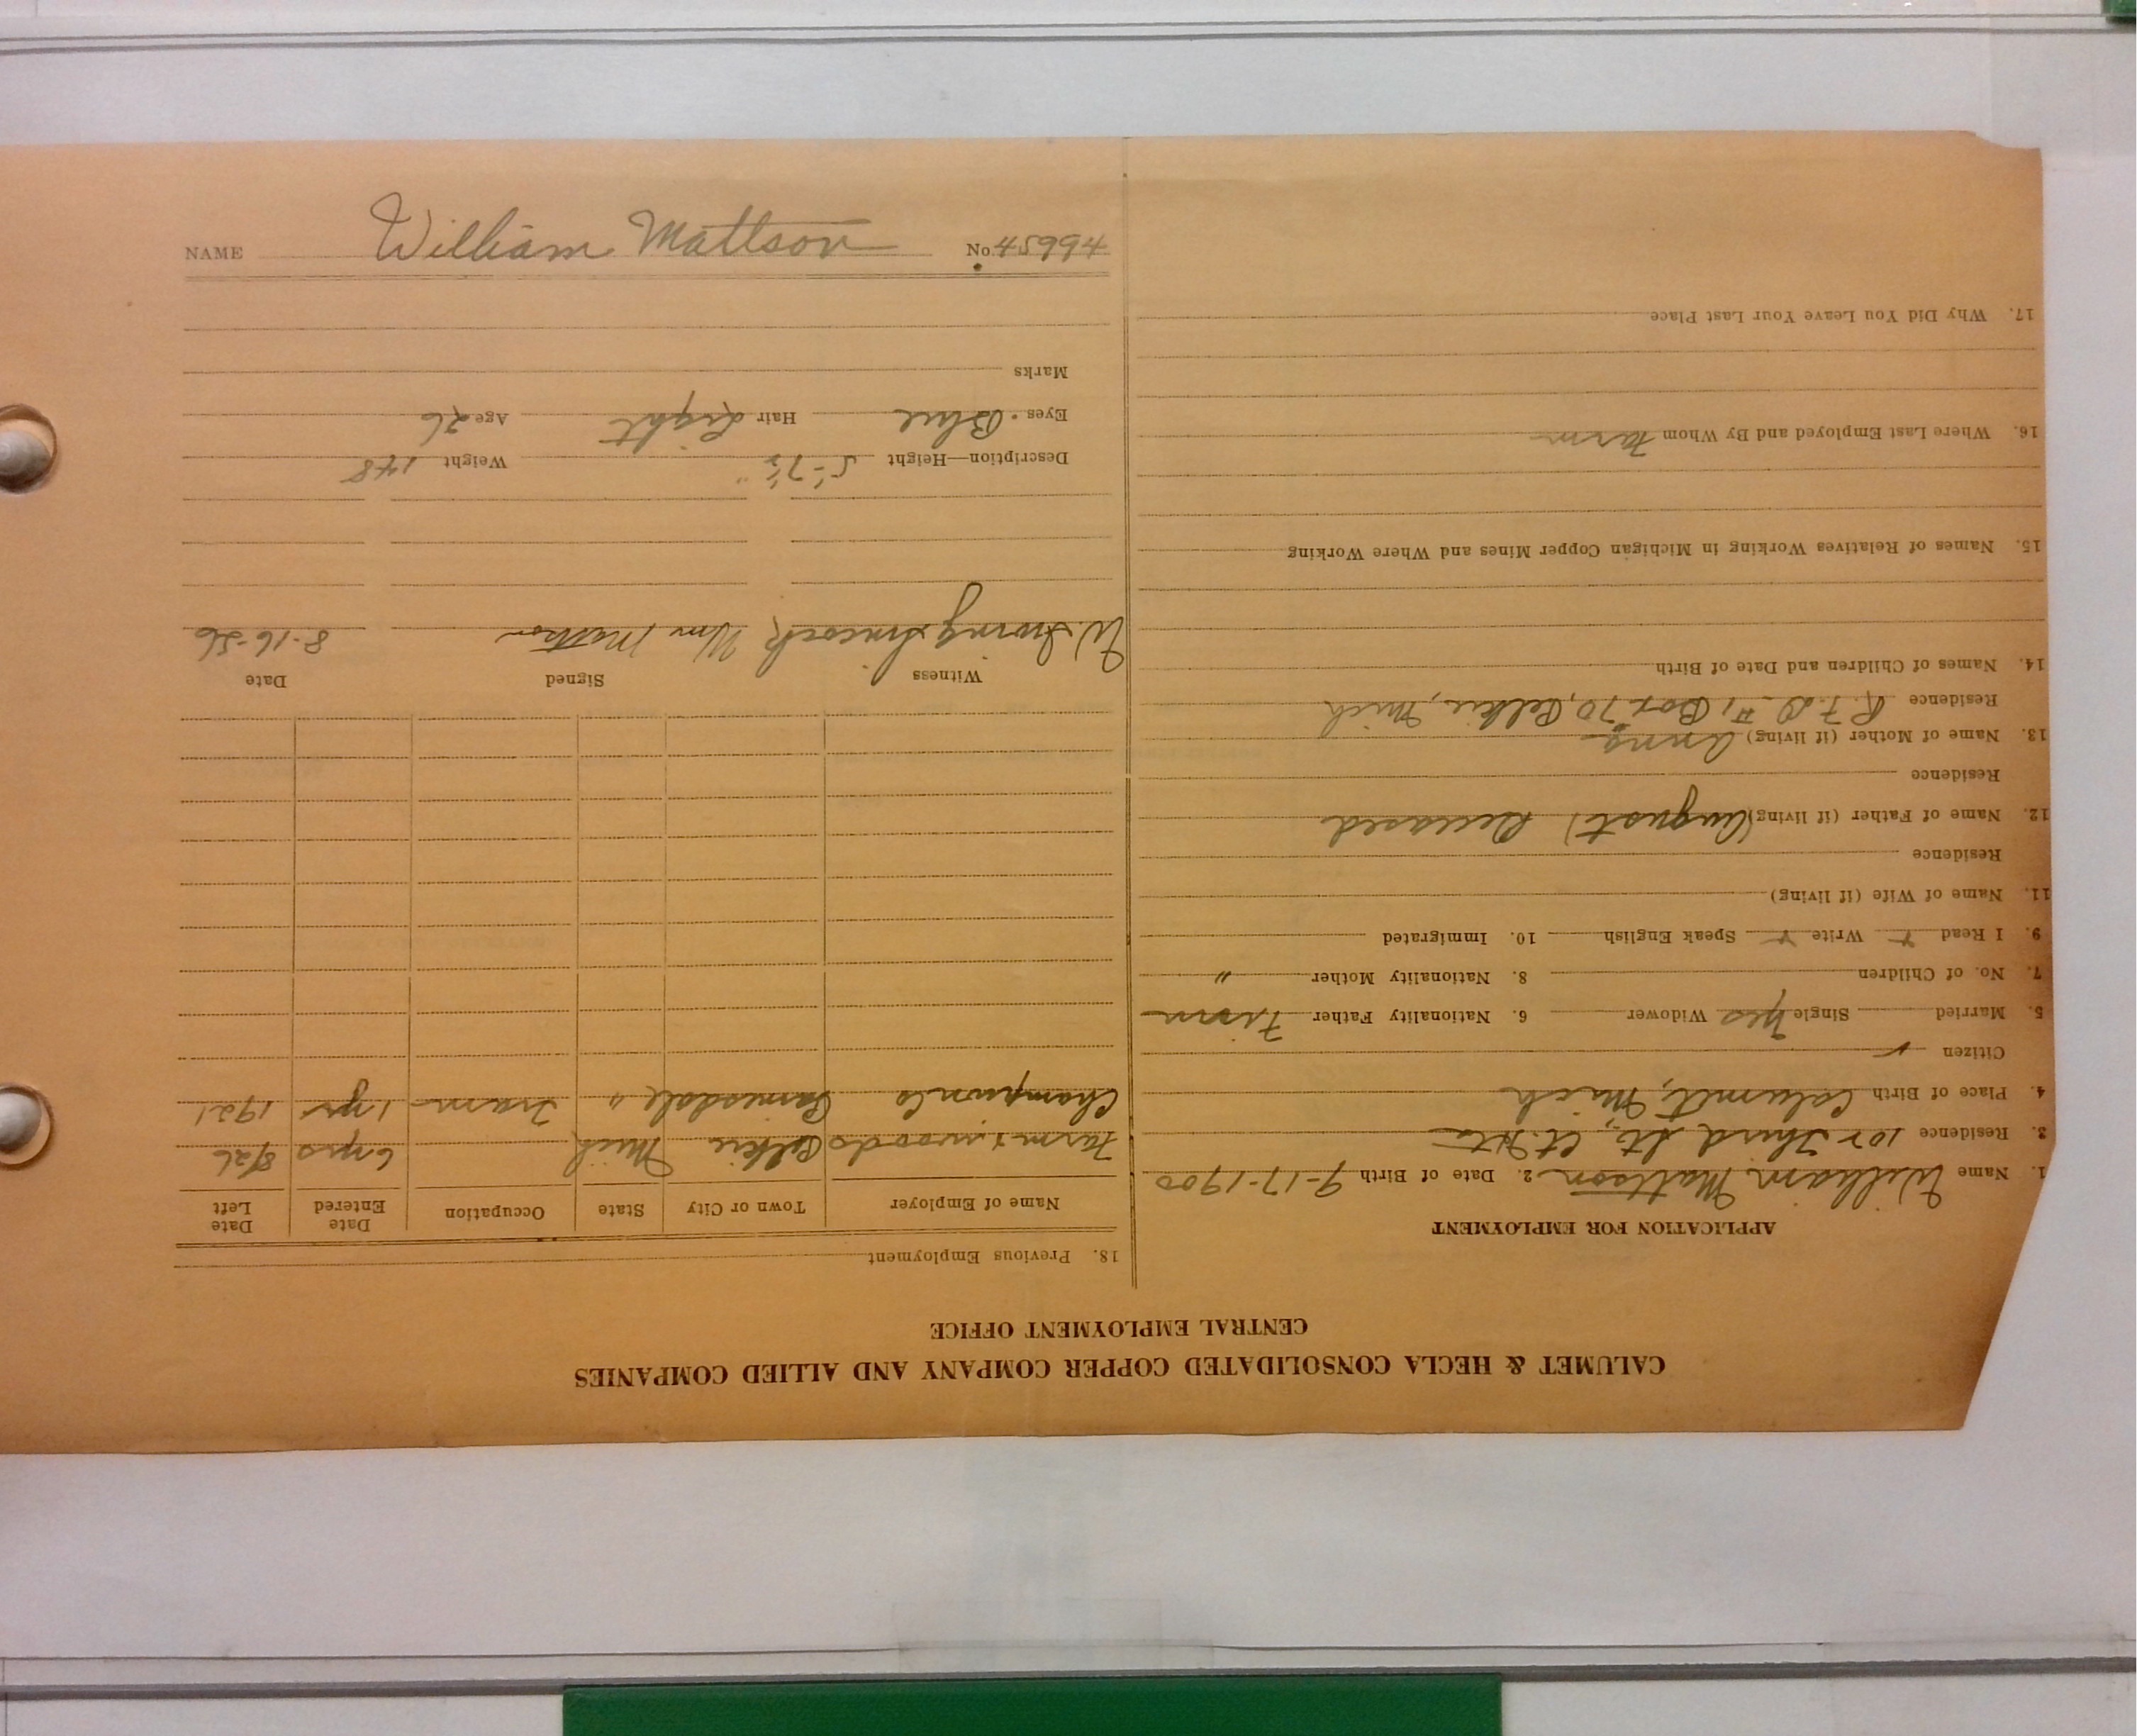 CALUMET & HECLA CONSOLIDATED COPPER COMPANY AND ALLIED COMPANIES
CENTRAL EMPLOYMENT OFFICE
APPLICATION FOR EMPLOYMENT
1. Name William Mattson 2. Date of Birth 9-17-1900
3. Residence Third St.,
4. Place of Birth Calumet, Mich
Citizen ✓
5. Married Single Yes Widower 6. Nationality Father Finn
7. No. of Children 8. Nationality Mother "
9. I Read Write Speak English 10. Immigrated
11. Name of Wife (if living)
Residence
12. Name of Father (if living) (August) Deceased
Residence
13. Name of Mother (if living) Anna
Residence R.F.D. #1, Box 70, Pelkie, Mich
14. Names of Children and Date of Birth
15. Names of Relatives Working in Michigan Copper Mines and Where Working
16. Where Last Employed and By Whom Farm
17. Why Did You Leave Your Last Place
18. Previous Employment
Name of Employer Town or City State Occupation Date Entered Date Left
Farm & woods Pelkie Mich 6 yrs 8/26
Champion Co Painesdale " Tram 1 yr 1921
Witness Signed Date
W. Irving Wm Mattson 8-16-26
Description—Height 5'-7½" Weight 148
Eyes Blue Hair Light Age 26
Marks
NAME William Mattson No.